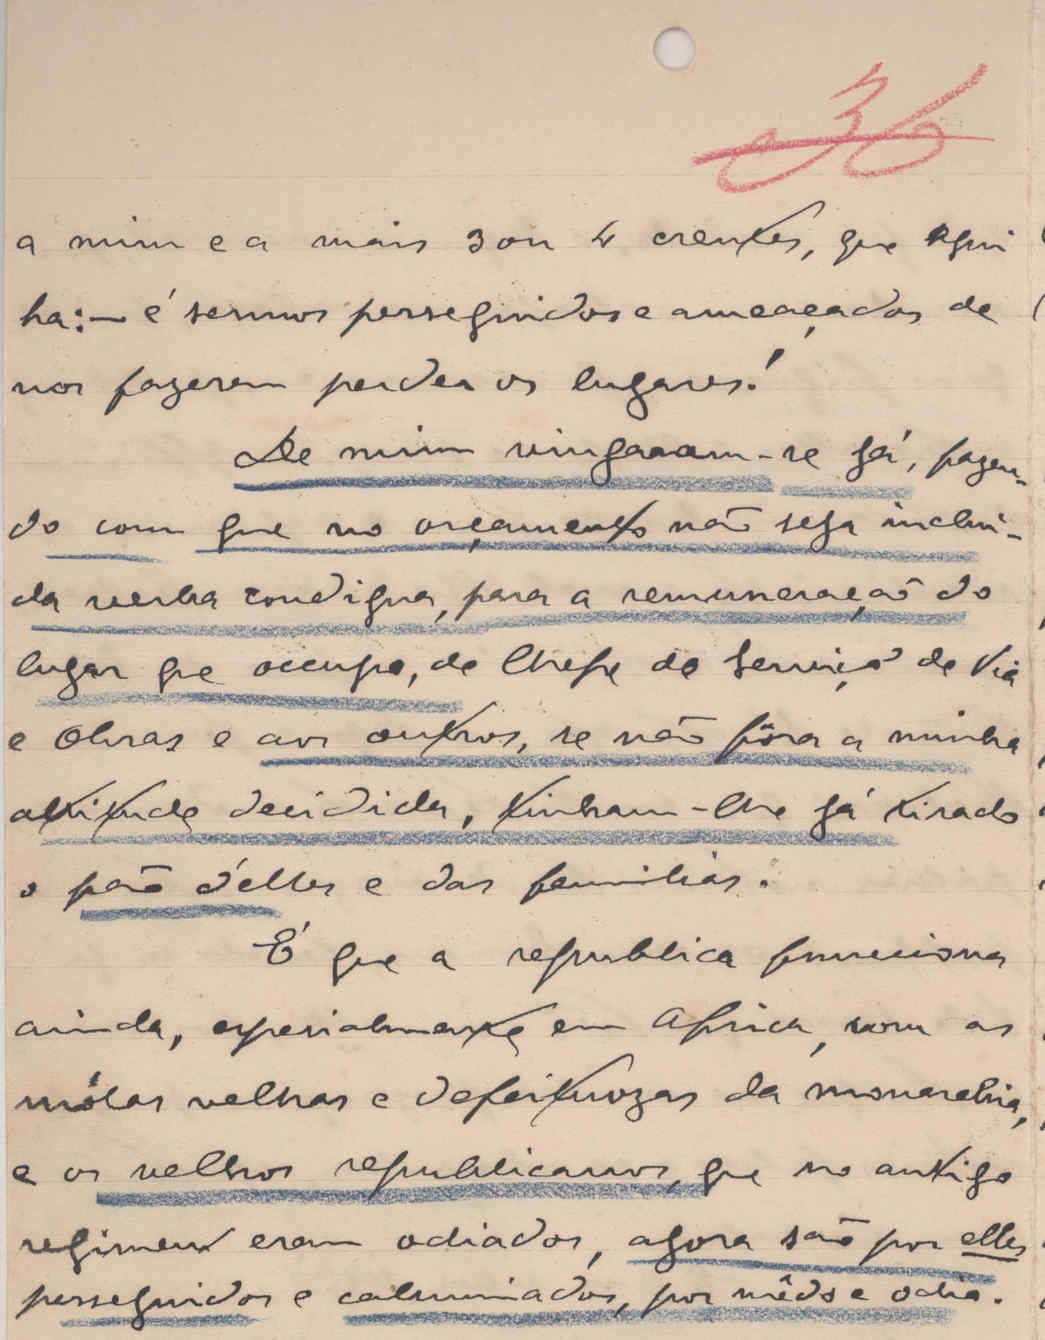 36
a mim e a mais 3 ou 4 crentes, que aqui
ha:— é sermos perseguidos e ameaçados de
nos fazerem perder os lugares!
De mim vingaram-se já, fazen-
do com que no orçamento não seja inclui-
da verba condigna, para a remuneração do
lugar que occupo, de Chefe do Serviço de Via
e Obras e aos outros, se não fôra a minha
attitude decidida, tinham-lhe já tirado
o pão d'elles e das familias.
É que a republica funciona
ainda, especialmente em Africa, com as
mólas velhas e defeituozas da monarchia,
e os velhos republicanos, que no antigo
regimen eram odiados, agora são por elles
perseguidos e calumniados, por mêdo e odio.